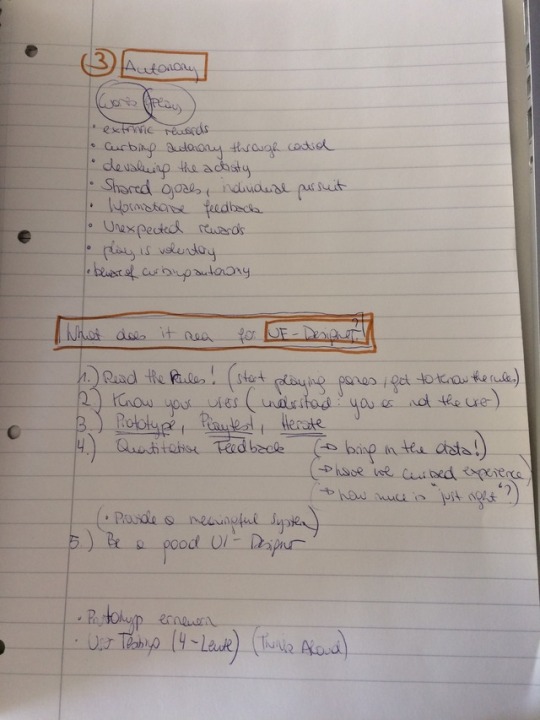 3 Autonomy
work Play
• extrinsic rewards
• curbing autonomy through control
• devaluing the activity
• Shared goals, individual pursuit
• Informational feedback
• Unexpected rewards
• play is voluntary
• beware of curbing autonomy
What does it mean for UX-Designer?
1.) Read the Rules! (start playing games, get to know the rules)
2.) Know your users (understand: you are not the user)
3.) Prototype, Playtest, Iterate
4.) Quantitative Feedback (→ bring in the data!)
(→ have we curbed experience)
(→ how much is "just right"?)
(• Provide a meaningful system)
5.) Be a good UI-Designer
• Prototyp erneuern
• User Testing (4-Leute) (Think Aloud)